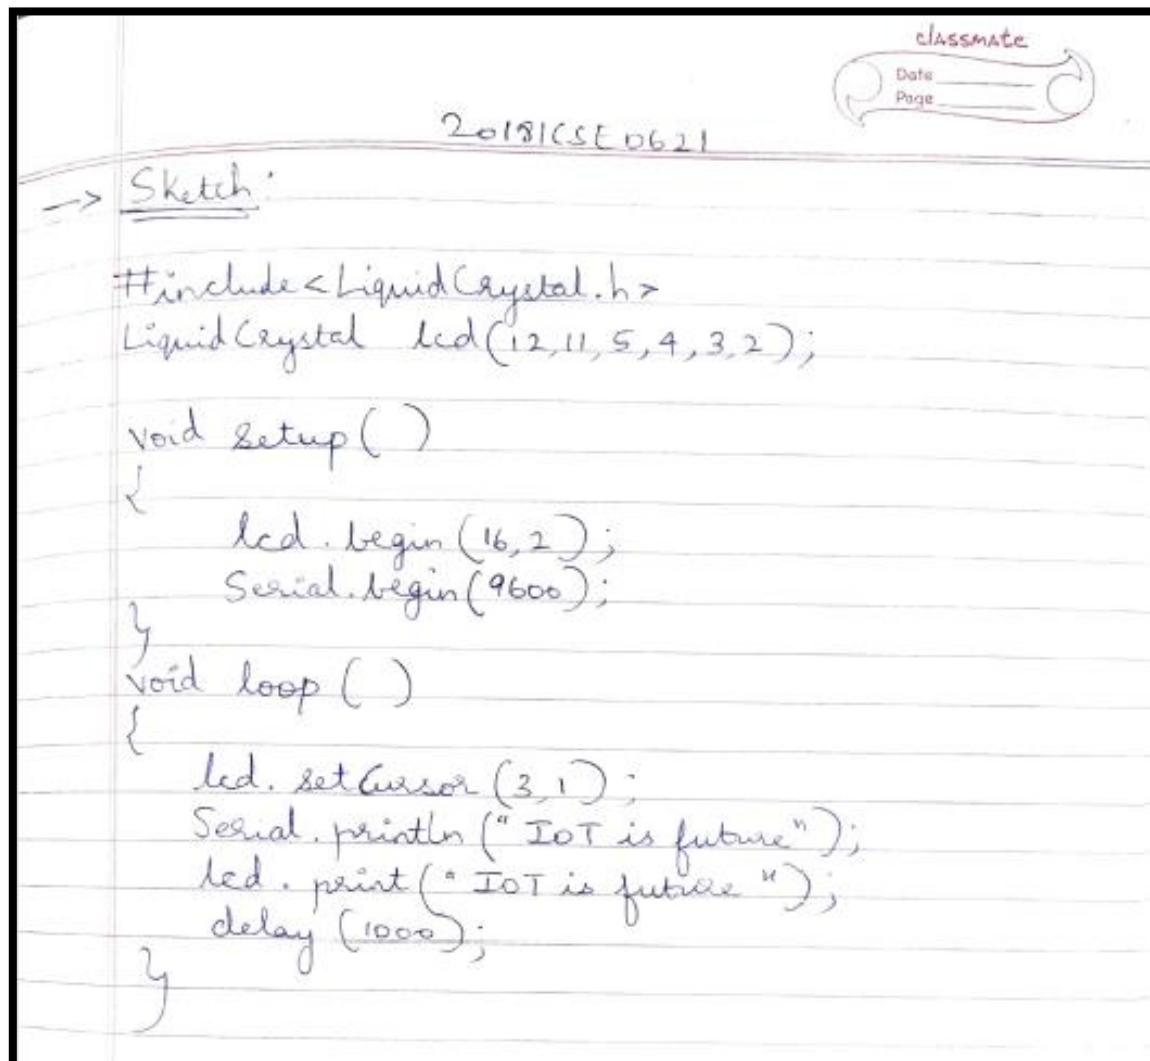 classmate
Date
Page
20181CSE0621
-> Sketch:
#include<LiquidCrystal.h>
LiquidCrystal lcd(12,11,5,4,3,2);
void setup( )
{
lcd.begin(16,2);
Serial.begin(9600);
}
void loop( )
{
lcd.setCursor(3,1);
Serial.println("IoT is future");
lcd.print("IoT is future");
delay(1000);
}